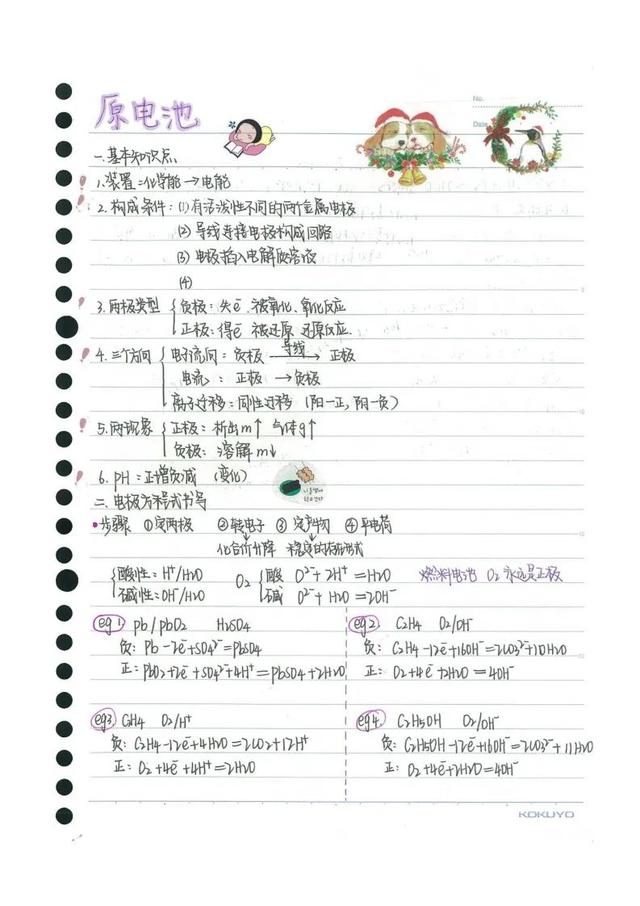 原电池
No.
Date
一.基本知识点
1.装置:化学能→电能
2.构成条件:(1)有活泼性不同的两个金属电极
(2)导线连接电极构成回路
(3)电极插入电解质溶液
(4)
3.两极类型 { 负极:失e⁻ 被氧化、氧化反应
正极:得e⁻ 被还原 还原反应
4.三个方向 { 电子流向:负极 导线→ 正极
电流:正极→负极
离子迁移:同性迁移(阳—正,阴—负)
5.两现象 { 正极:析出m↑ 气体g↑
负极:溶解m↓
6. PH:正增负减 (变化)
二.电极方程式书写
•步骤 ①定两极 ②转电子 ③定产物 ④平电荷
化合价升降 稳定的存在形式
{ 酸性:H⁺/H2O O2 { 酸 O²⁻+2H⁺=H2O 燃料电池 O2永远是正极
碱性:OH⁻/H2O 碱 O²⁻+H2O=2OH⁻
eg1. Pb/PbO2 H2SO4
负:Pb-2e⁻+SO4²⁻=PbSO4
正:PbO2+2e⁻+SO4²⁻+4H⁺=PbSO4+2H2O
eg2. C2H4 O2/OH⁻
负:C2H4-12e⁻+16OH⁻=2CO3²⁻+10H2O
正:O2+4e⁻+2H2O=4OH⁻
eg3. C2H4 O2/H⁺
负:C2H4-12e⁻+4H2O=2CO2+12H⁺
正:O2+4e⁻+4H⁺=2H2O
eg4. C2H5OH O2/OH⁻
负:C2H5OH-12e⁻+16OH⁻=2CO3²⁻+11H2O
正:O2+4e⁻+2H2O=4OH⁻
KOKUYO